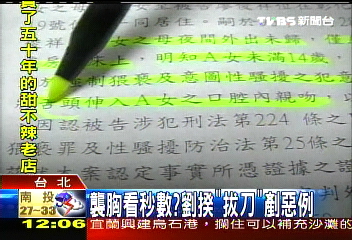 TVBS新聞台
賣了五十年的甜不辣老店
女之母夜間外出未歸
未上,明知A女未滿14歲,
制猥褻及意圖性騷擾之犯意
舌頭伸入A女之口腔內親吻
因認被告涉犯刑法第224條之
猥褻罪及性騷擾防治法第25條之
案認定事實所憑證據
台北
南投
27-33
襲胸看秒數?劉揆"拔刀"劊惡例
12:06
宜蘭興建烏石港,攔住可以補充沙灘的